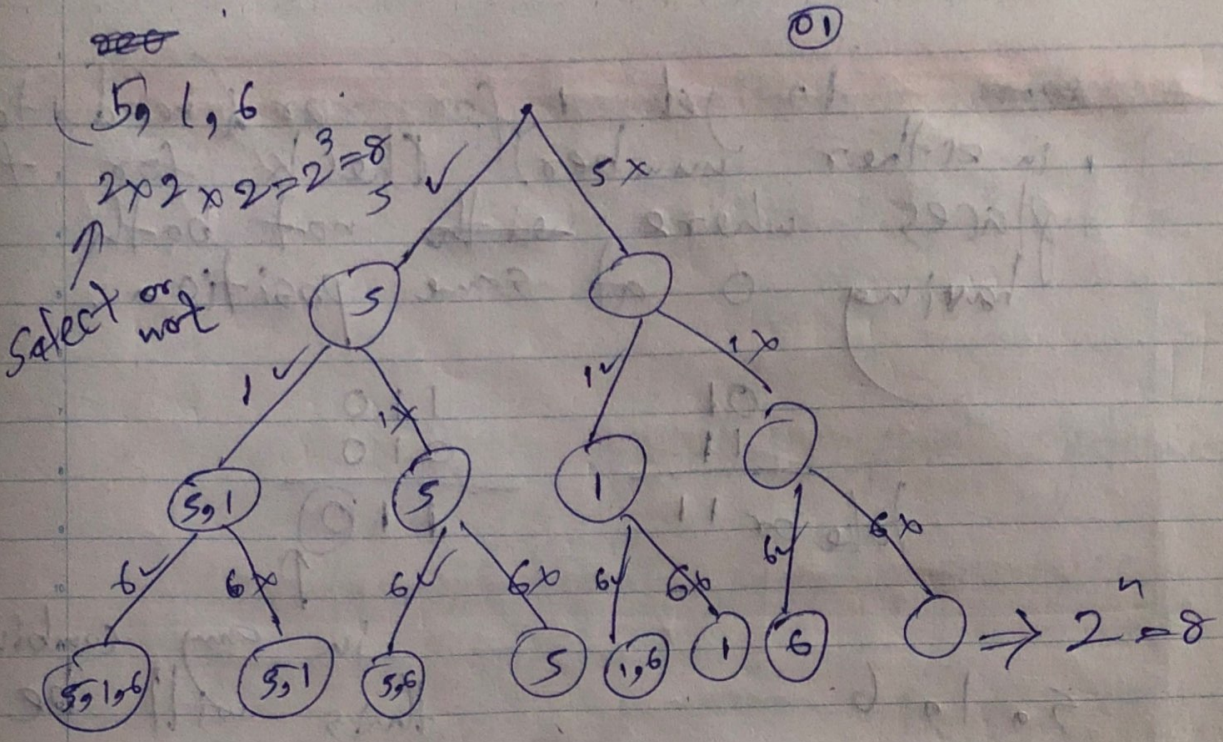 01
5, 1, 6
2x2x2=2³=8
select or not
5 ✓ 5 x
5
1 ✓ 1x 1 ✓ 1x
5,1 5 1
6 ✓ 6x 6 ✓ 6x 6 ✓ 6x 6 ✓ 6x
5,1,6 5,1 5,6 5 1,6 1 6 ⇒ 2ⁿ = 8